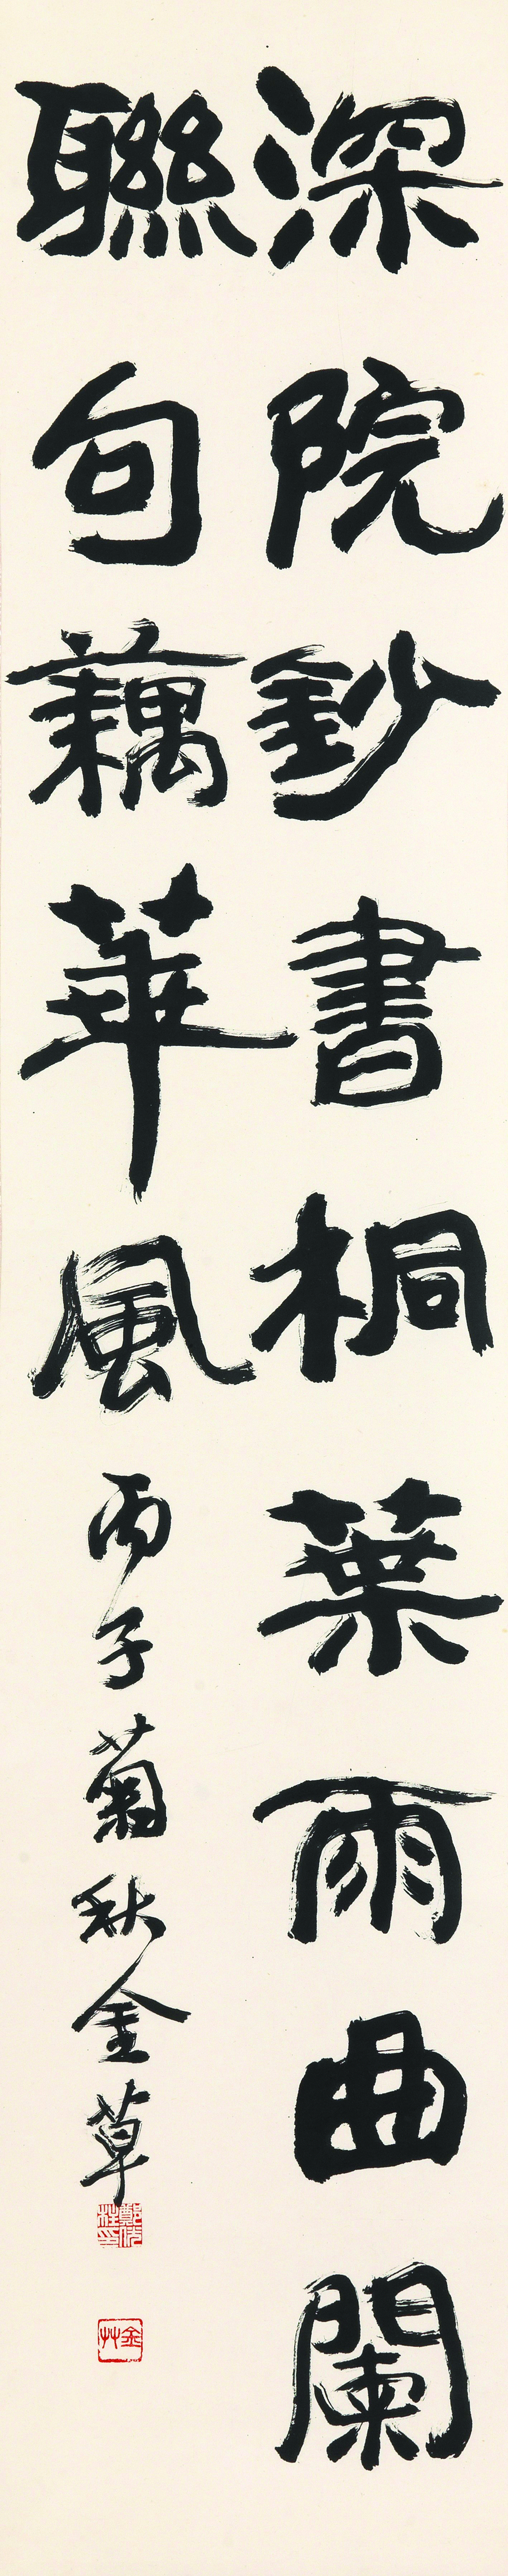 深院鈔書桐葉雨曲闌
聯句藕華風丙子菊秋金草
金艸